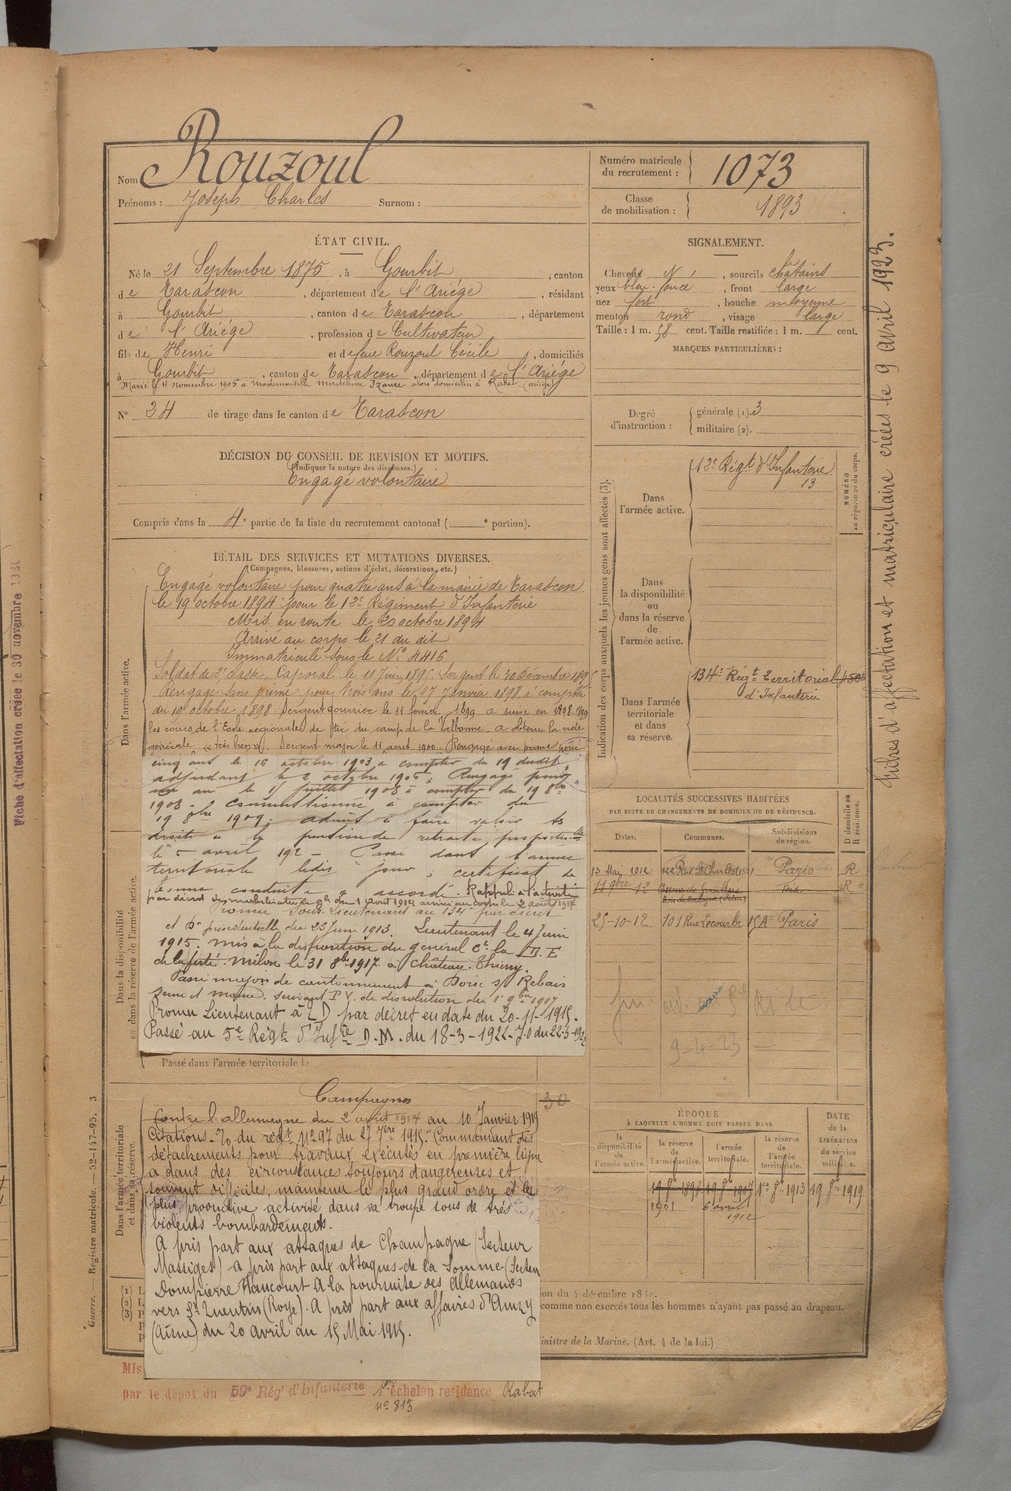 Nom Rouzoul
Prénoms : Joseph Charles Surnom :
Numéro matricule du recrutement : 1073
Classe de mobilisation : 1893
ÉTAT CIVIL.
Né le 21 Septembre 1875, à Gourbit, canton
de Tarascon, département de l'Ariége, résidant
à Gourbit, canton de Tarascon, département
de l'Ariége, profession de Cultivateur
fils de Henri et de feue Rouzoul Cécile, domiciliés
à Gourbit, canton de Tarascon, département de l'Ariége
Marié le 11 novembre 1905 à mademoiselle
N° 34 de tirage dans le canton de Tarascon
SIGNALEMENT.
Cheveux sourcils châtains
yeux front large
nez fort, bouche moyenne
menton rond, visage large
Taille : 1 m. 58 cent. Taille rectifiée : 1 m. cent.
MARQUES PARTICULIÈRES :
Degré d'instruction : générale (1). 3
militaire (2).
DÉCISION DU CONSEIL DE REVISION ET MOTIFS.
(Indiquer la nature des dispenses.)
Engagé volontaire
Compris dans la 4e partie de la liste du recrutement cantonal ( e portion).
DÉTAIL DES SERVICES ET MUTATIONS DIVERSES.
(Campagnes, blessures, actions d'éclat, décorations, etc.)
Dans l'armée active.
Engagé volontaire pour quatre ans à la mairie de Tarascon
le 19 octobre 1894 pour le 12e Régiment d'Infanterie
Mis en route le 20 octobre 1894
Arrivé au corps le 21 du dit
Immatriculé sous le N° 4416
Soldat de 2e classe. Caporal le 11 juin 1895. Sergent le 30 décembre
Rengagé sans prime pour trois ans le 27 Janvier 1898 à compter
du 19 octobre 1898. Sergent fourrier le 11 février 1899 a suivi en 1898-1899
les cours de l'Ecole régionale de tir du camp de la Valbonne. a obtenu la note
générale "très bien". Sergent major le 11 avril 1900. Rengagé avec prime pour
cinq ans le 16 octobre 1903 à compter du 19 dudit,
adjudant le 2 octobre 1905; Rengagé pour
un an le juillet 1908 à compter du 19 8bre
1908 - commissionné à compter du
19 9bre 1909; admis à faire valoir ses
droits à la pension de retraite proportionnelle
le 5 avril 1912 - Passé dans l'armée
territoriale ledit jour; certificat de
bonne conduite accordé. Rappelé à l'activité
par décret de mobilisation générale du 1 août 1914 arrivé au corps le 2 août 1914
Promu Sous-Lieutenant au 134e par décret
et Don présidentielle du 23 Juin 1913. Lieutenant le 4 Juin
1915. mis à la disposition du général Ct la D.E
de la ferté-Milon le 31 8bre 1917 à château-Thierry.
Passé major de cantonnement à Rebais
Seine et marne. Suivant P.V. de dissolution du 1er 9bre 1917
Promu Lieutenant à T D par décret en date du 20-11-1915.
Passé au 5e Régt d'Infie D.M. du 18-3-1922- J.O du 22-3-1922
Passé dans l'armée territoriale le
Dans la disponibilité ou dans la réserve de l'armée active.
Dans l'armée territoriale et dans sa réserve.
Campagnes
Contre l'allemagne du 2 août 1914 au 10 Janvier 1919
Citation. O. du régt n° 97 du 27 7bre 1915. "Commandant des
détachements pour travaux exécutés en première ligne
a dans des circonstances toujours dangereuses et
souvent difficile, maintenu le plus grand ordre et la
plus productive activité dans sa troupe sous de très
violents bombardements.
A pris part aux attaques de Champagne (Secteur
Massiges) a pris part aux attaques de la Somme (Secteur
Dompierre Flaucourt. A la poursuite des Allemands
vers St Quentin (Roye). A pris part aux affaires d'
(Aisne) du 20 avril au 15 Mai 1917.
Indication des corps auxquels les jeunes gens sont affectés (3).
Dans l'armée active.
12e Régt d'Infanterie
13
NUMÉRO au répertoire du corps.
Dans la disponibilité ou dans la réserve de l'armée active.
Dans l'armée territoriale et dans sa réserve.
134e Régt Territorial
d'Infanterie
LOCALITÉS SUCCESSIVES HABITÉES
PAR SUITE DE CHANGEMENTS DE DOMICILE OU DE RÉSIDENCE.
Dates. Communes. Subdivisions de région. D domicile ou R résidence.
13 Mai 1912 Paris R
11 9bre 12 R
25-10-12 101 Rue Lecourbe 15A Paris
9-4-23
ÉPOQUE
À LAQUELLE L'HOMME DOIT PASSER DANS
la disponibilité de l'armée active. la réserve de l'armée active. l'armée territoriale. la réserve de l'armée territoriale.
DATE de la LIBÉRATION du service militaire.
19 8bre 1898 19 8bre 1907 1er 8bre 1913 19 8bre 1919
1901 6 avril 1912
comme non exercés tous les hommes n'ayant pas passé au drapeau.
Ministre de la Marine. (Art. 4 de la loi.)
par le dépôt du 59e Rég' d'Infanterie 1er échelon residence Rabat
n° 813
Fiches d'affectation et matriculaire créées le 9 avril 1923.
Fiche d'affectation créée le 30 novembre
Guerre. Registre matricule. — 52-147-95. 3